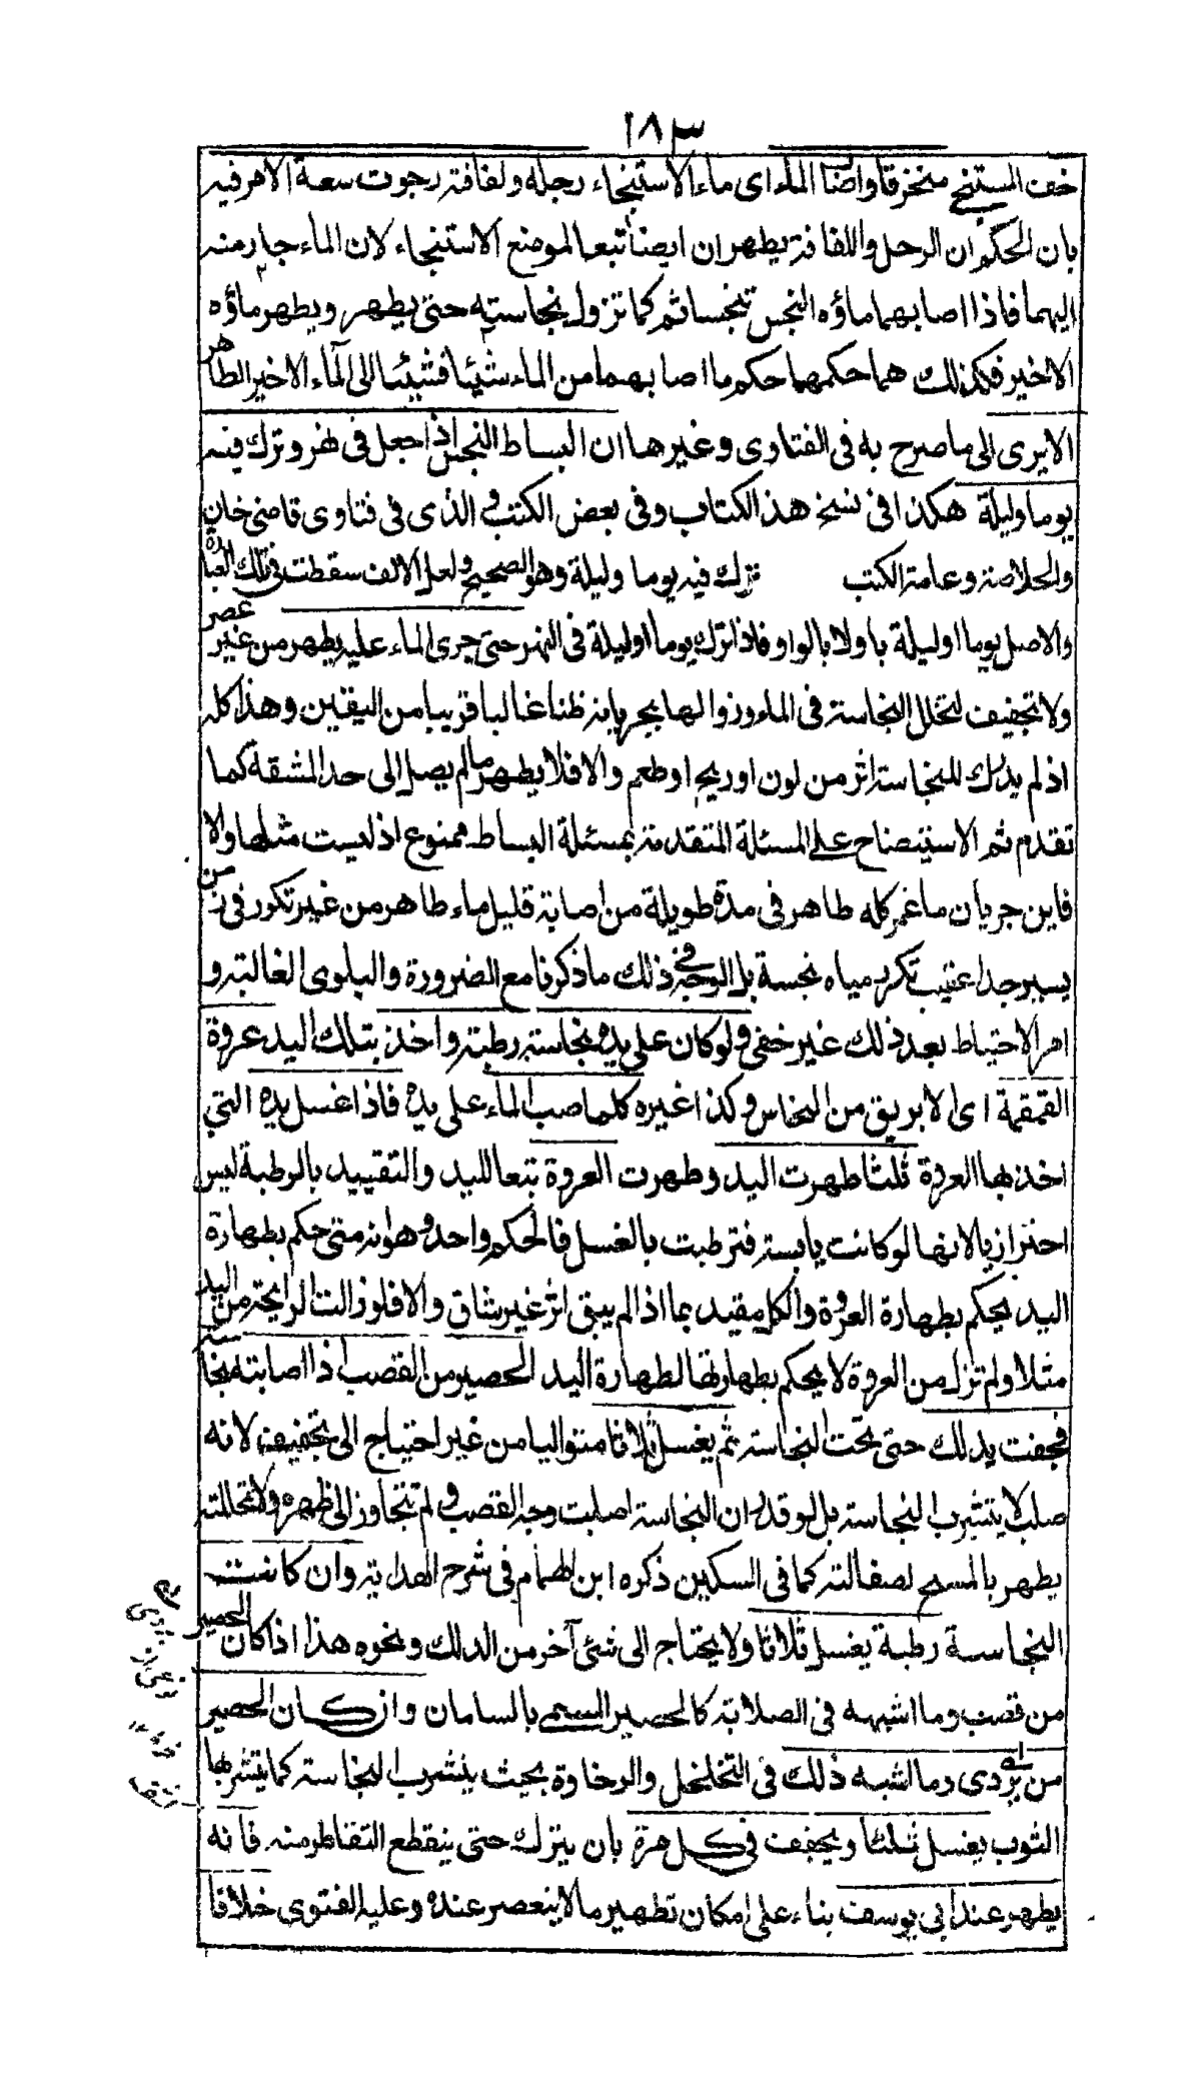 ١٨٣
خف المستنجي منخرقا واصاب الماء اى ماء الاستنجاء رجله ولفافته رجوت سعة الامر فيه
بان الحكم ان الرجل واللفافة يطهران ايضا تبعا لموضع الاستنجاء لان الماء جار منه
اليهما فاذا اصابهما ماؤه النجس تنجسا ثم كما تزول نجاسته حتى يطهر ويطهر ماؤه
الاخير فكذلك هما حكمهما حكم ما اصابهما من الماء شيئا فشيئا الى الماء الاخير الطاهر
الا يرى الى ما صرح به فى الفتاوى وغيرها ان البساط النجس اذا جعل فى نهر وترك فيه
يوما وليلة هكذا فى نسخ هذا الكتاب وفى بعض الكتب والذى فى فتاوى قاضى خان
والخلاصة وعامة الكتب ترك فيه يوما وليلة وهو الصحيح ولعل الالف سقطت فى تلك العبارة
والاصل يوما او ليلة باو لا بالواو فاذا ترك يوما او ليلة فى النهر حتى جرى الماء عليه يطهر من غير عصر
ولا تجفيف لتخلل النجاسة فى الماء وزوالها بجريانه ظنا غالبا قريبا من اليقين وهذا كله
اذ لم يدرك للنجاسة اثر من لون او ريح او طعم والا فلا يطهر ما لم يصل الى حد المشقة كما
تقدم ثم الاستيضاح على المسئلة المتقدمة بمسئلة البساط ممنوع اذ ليست مثلها والا
فاين جريان ما غمر كله طاهر فى مدة طويلة من اصابة قليل ماء طاهر من غير تكرر فى زمن
يسير جدا عقيب تكرر مياه نجسة بل الوجه فى ذلك ما ذكرنا مع الضرورة والبلوى الغالبة و
امر الاحتياط بعد ذلك غير خفى ولو كان على يده نجاسة رطبة واخذ بتلك اليد عروة
القمقمة اى الابريق من النحاس وكذا غيره كلما صب الماء على يده فاذا غسل يده التى
اخذ بها العروة ثلثا طهرت اليد وطهرت العروة تبعا لليد والتقييد بالرطبة ليس
احترازيا لانها لو كانت يابسة فترطبت بالغسل فالحكم واحد وهو انه متى حكم بطهارة
اليد يحكم بطهارة العروة والكل مقيد بما اذا لم يبق اثر غير شاق والا فلو زالت الرايحة من اليد
مثلا ولم تزل من العروة لا يحكم بطهارتها لطهارة اليد الحصير من القصب اذا اصابته نجاسة
فجفت يدلك حتى تحت النجاسة ثم يغسل ثلاثا متواليا من غير احتياج الى تجفيف لانه
صلب لا يتشرب النجاسة بل لو قدر ان النجاسة اصابت وجه القصب ولم تتجاوز الى ظهره ولا تخللته
يطهر بالمسح لصقالته كما فى السكين ذكره ابن الهمام فى شرح الهداية وان كانت
النجاسة رطبة يغسل ثلاثا ولا يحتاج الى شئ آخر من الدلك ونحوه هذا اذا كان الحصير
من قصب وما اشبهه فى الصلابة كالحصير المسمى بالسامان وان كان الحصير
من بردى وما اشبه ذلك فى التخلخل والرخاوة بحيث يتشرب النجاسة كما يتشربها
الثوب يغسل ثلثا ويجفف فى كل مرة بان يترك حتى ينقطع التقاطر منه فانه
يطهر عند ابى يوسف بناء على امكان تطهير ما لا ينعصر عنده وعليه الفتوى خلافا